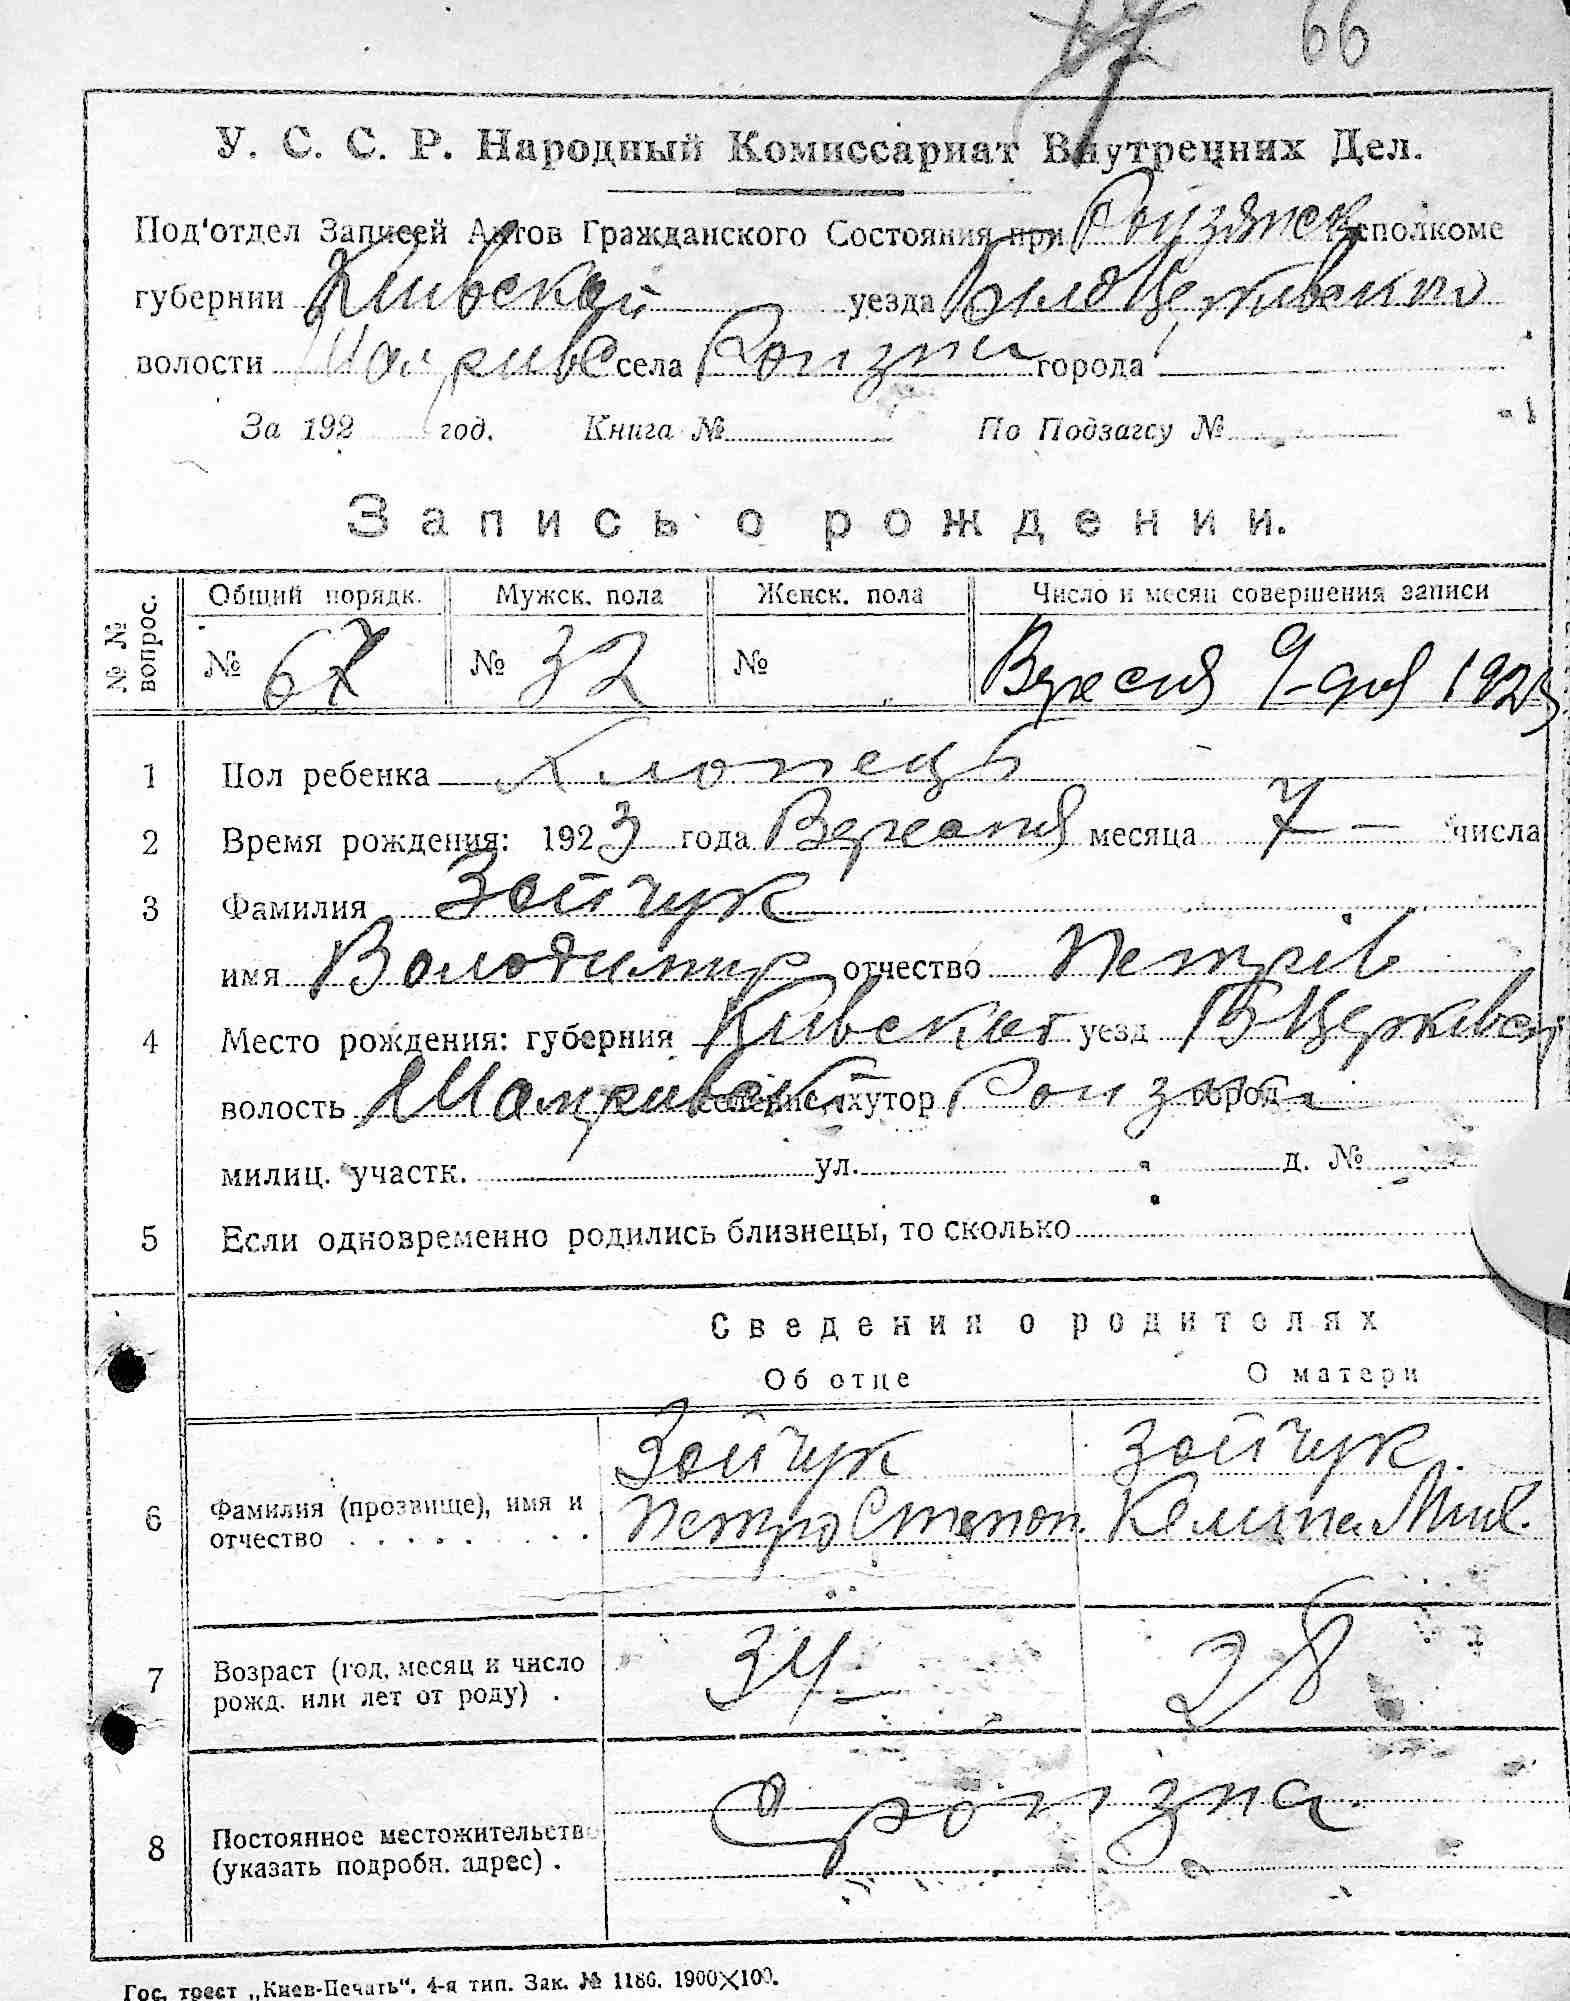 66
У. С. С. Р. Народный Комиссариат Внутрецних Дел.
Под'отдел Записей Актов Гражданского Состояния при Роізянск Исполкоме
губернии Київской уезда БілоЦерківского
волости села Роізни города
За 192 год. Книга № По Подзагсу №
Запись о рождении.
№ № вопрос. Общий порядк. Мужск. пола Женск. пола Число и месяц совершения записи
№ 67 № 32 № Вересня 9-дня 1923
1 Пол ребенка Хлопець
2 Время рождения: 1923 года Вересня месяца 7 — числа
3 Фамилия Зойчук
имя Володимир отчество Петрів
4 Место рождения: губерния Київська уезд Б-Церківськ
волость Шамраївськ селение, хутор Роізна город
милиц. участк. ул. д. №
5 Если одновременно родились близнецы, то сколько
Сведения о родителях
Об отце О матери
Зойчук Зойчук
6 Фамилия (прозвище), имя и отчество . . . . . . . Петро Степан. Килина Мих.
7 Возраст (год, месяц и число рожд. или лет от роду) . 34 28
8 Постоянное местожительство (указать подробн. адрес) . С роізна.
Гос. трест „Киев-Печать". 4-я тип. Зак. № 1186. 1900×100.